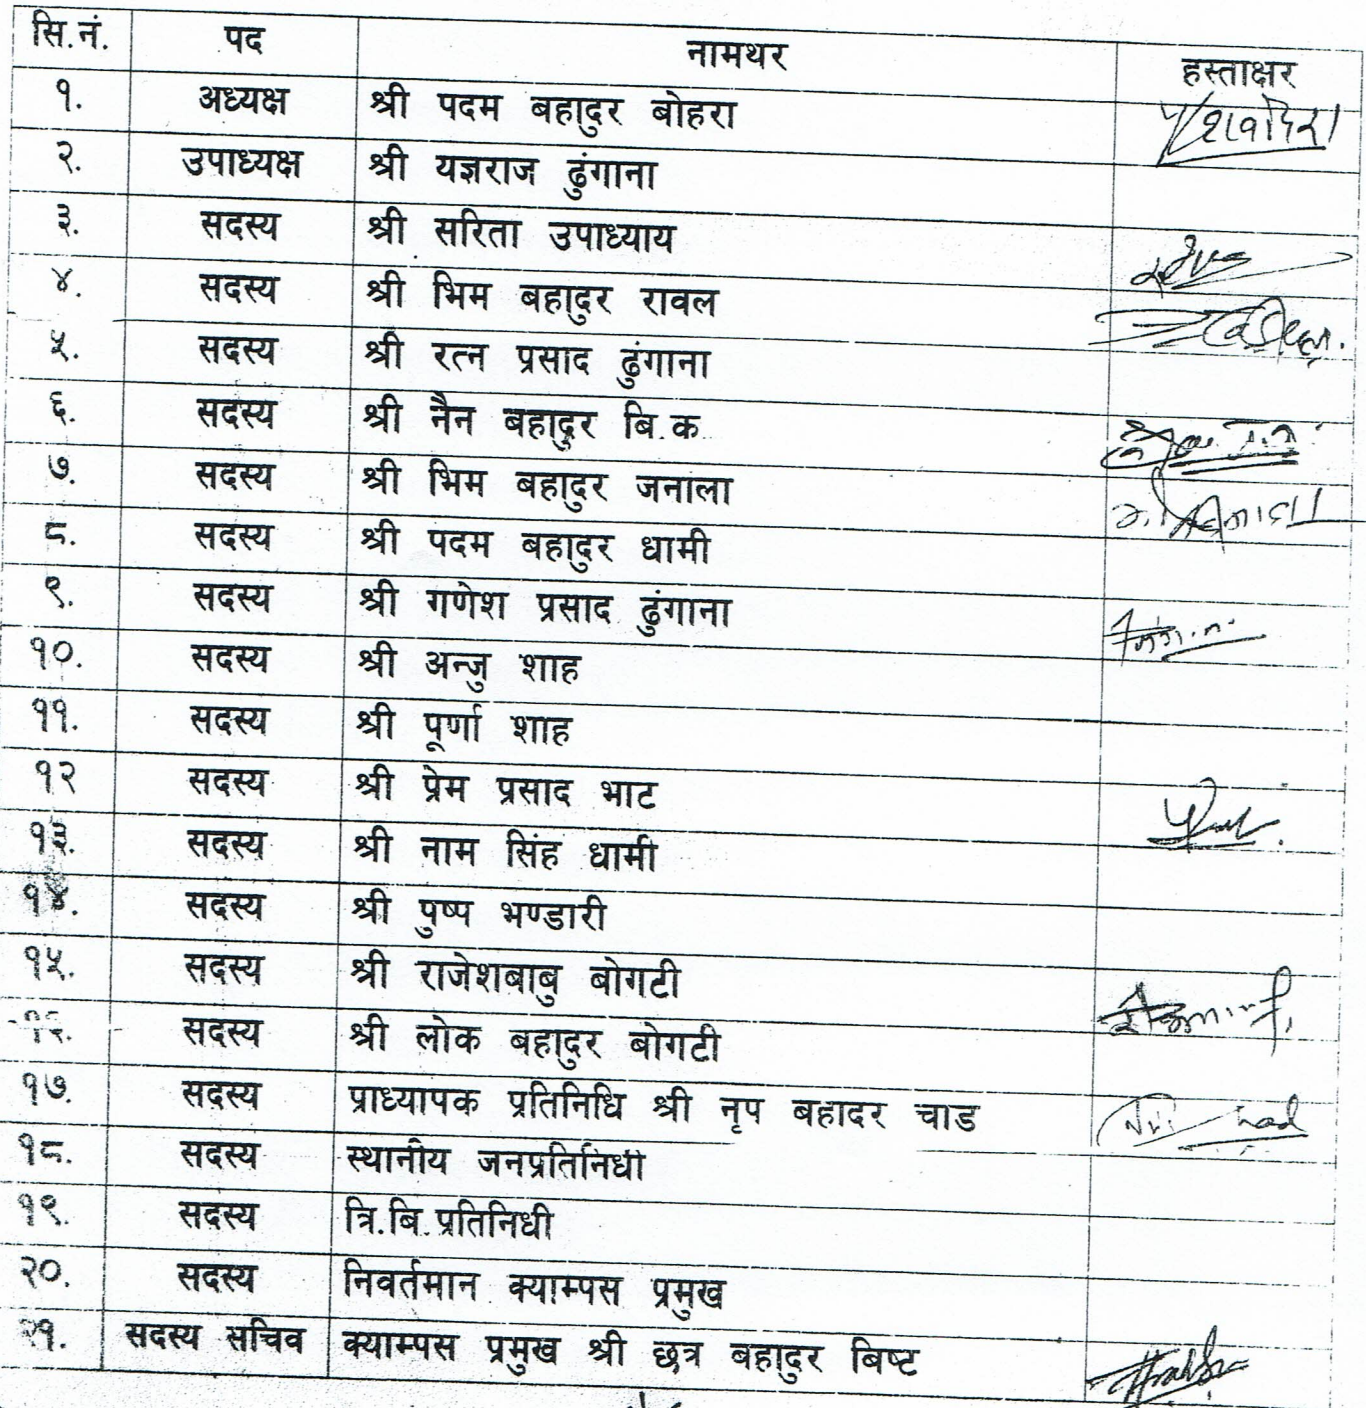 सि.नं. पद नामथर हस्ताक्षर
१. अध्यक्ष श्री पदम बहादुर बोहरा
२. उपाध्यक्ष श्री यज्ञराज ढुंगाना
३. सदस्य श्री सरिता उपाध्याय
४. सदस्य श्री भिम बहादुर रावल
५. सदस्य श्री रत्न प्रसाद ढुंगाना
६. सदस्य श्री नैन बहादुर बि.क
७. सदस्य श्री भिम बहादुर जनाला
८. सदस्य श्री पदम बहादुर धामी
९. सदस्य श्री गणेश प्रसाद ढुंगाना
१०. सदस्य श्री अन्जु शाह
११. सदस्य श्री पूर्णा शाह
१२ सदस्य श्री प्रेम प्रसाद भाट
१३. सदस्य श्री नाम सिंह धामी
१४. सदस्य श्री पुष्प भण्डारी
१५. सदस्य श्री राजेशबाबु बोगटी
१६. सदस्य श्री लोक बहादुर बोगटी
१७. सदस्य प्राध्यापक प्रतिनिधि श्री नृप बहादर चाड
१८. सदस्य स्थानीय जनप्रतिनिधी
१९. सदस्य त्रि.बि.प्रतिनिधी
२०. सदस्य निवर्तमान क्याम्पस प्रमुख
२१. सदस्य सचिव क्याम्पस प्रमुख श्री छत्र बहादुर बिष्ट